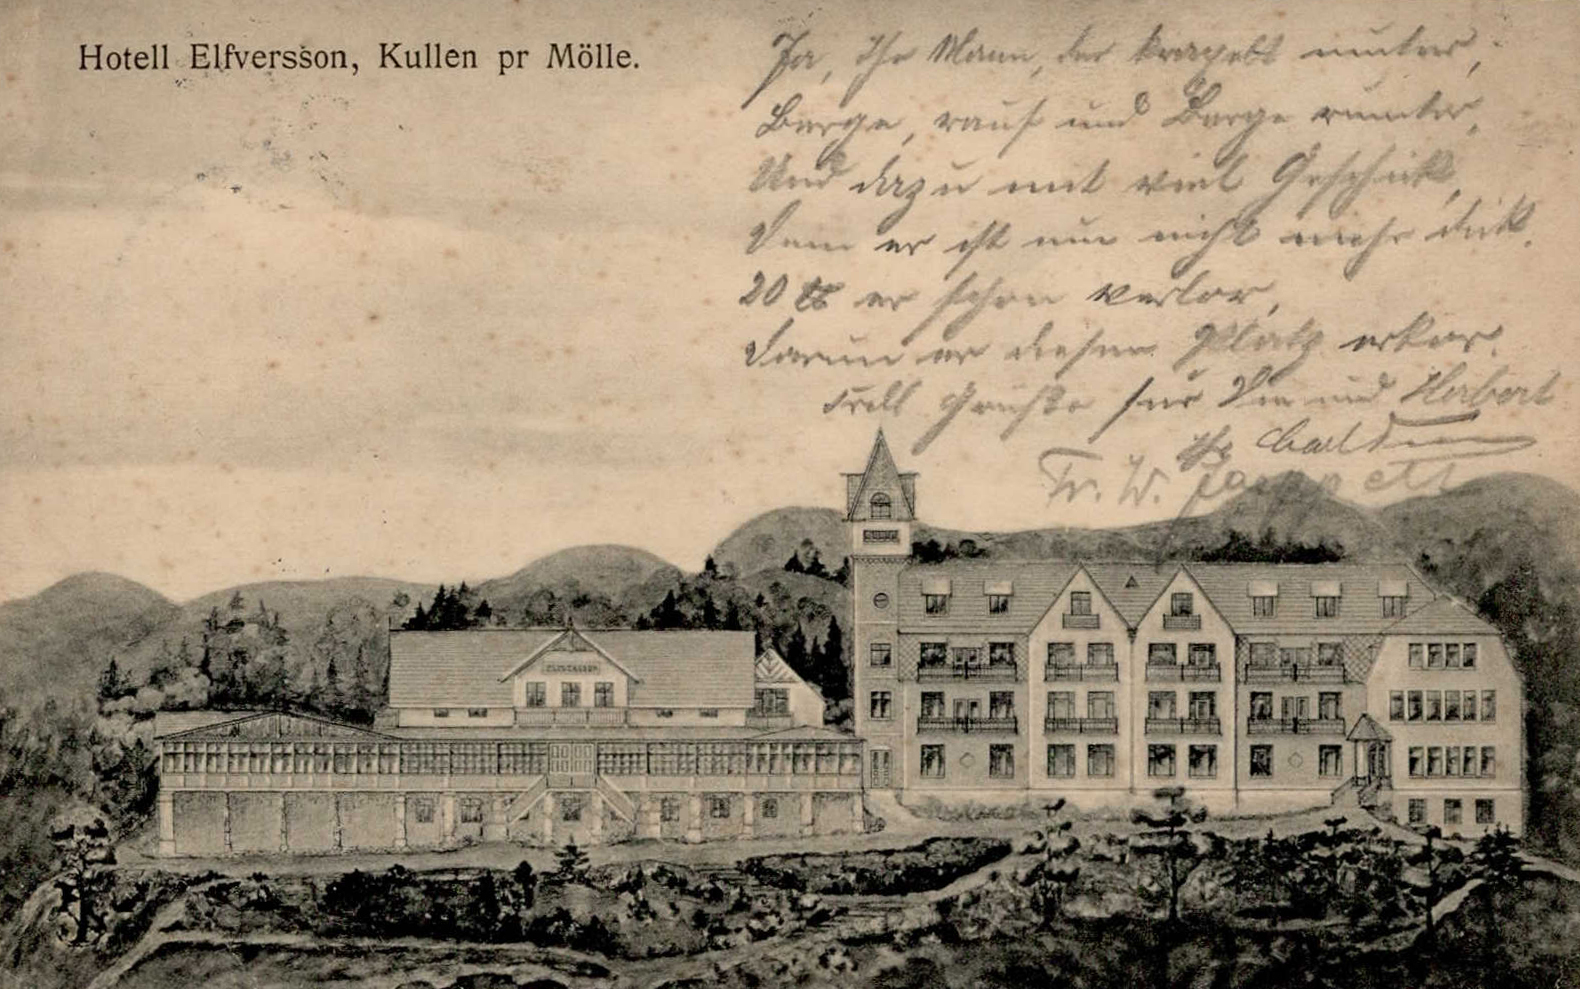 Hotell Elfversson, Kullen pr Mölle.
Ja, Ihr Mann, der kraxelt munter,
Berge rauf und Berge runter,
Und dazu mit viel Geschick,
Denn er ist nun nicht mehr dick.
20 ℔ er schon verlor,
Darum er diesen Platz erkor.
Grüsse für Sie und Herbert
Ihr
Fr. W.